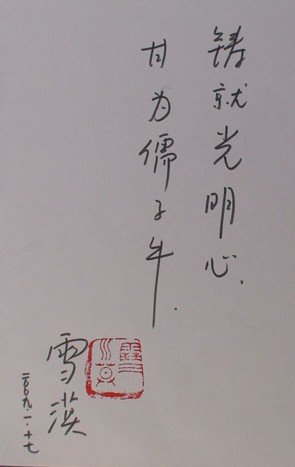 铸就光明心，
甘为儒子牛.
雪漠
二〇〇九.一.十七